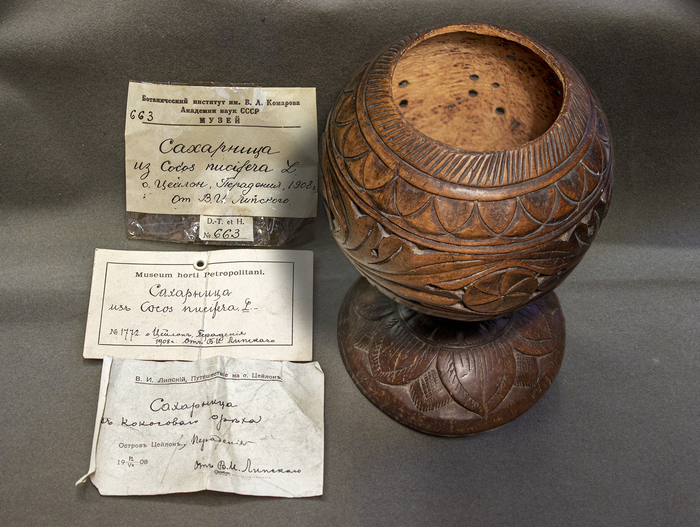 Ботаническій институт им. В. А. Комарова
Академии наук СССР
663 МУЗЕЙ
Сахарница
из Cocos nucifera L
о. Цейлон, Перадения, 1908 г.
от В.И. Липского
D.-T. et H.
№ 663
Museum horti Petropolitani.
Сахарница
изъ Cocos nucifera. L.
№ 1772 о Цейлонъ, Перадения
1908 г. Отъ В.И. Липскаго
В. И. Липскій, Путешествіе на о. Цейлонъ.
Сахарница
кокосоваго орѣха
Островъ Цейлонъ, Перадения
19 08
Отъ В.И. Липскаго